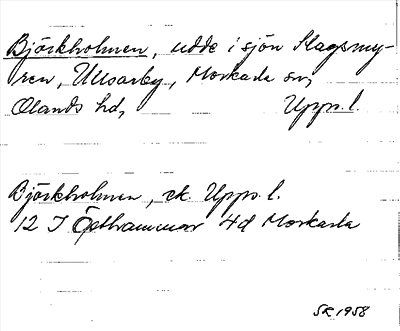 Björkholmen, udde i sjön Slagsmy-
ren, Ullsarby, Morkarla sn,
Olands hd, Upps. l.
Björkholmen, ek. Upps. l.
12 I Östhammar 4d Morkarla
SR 1958